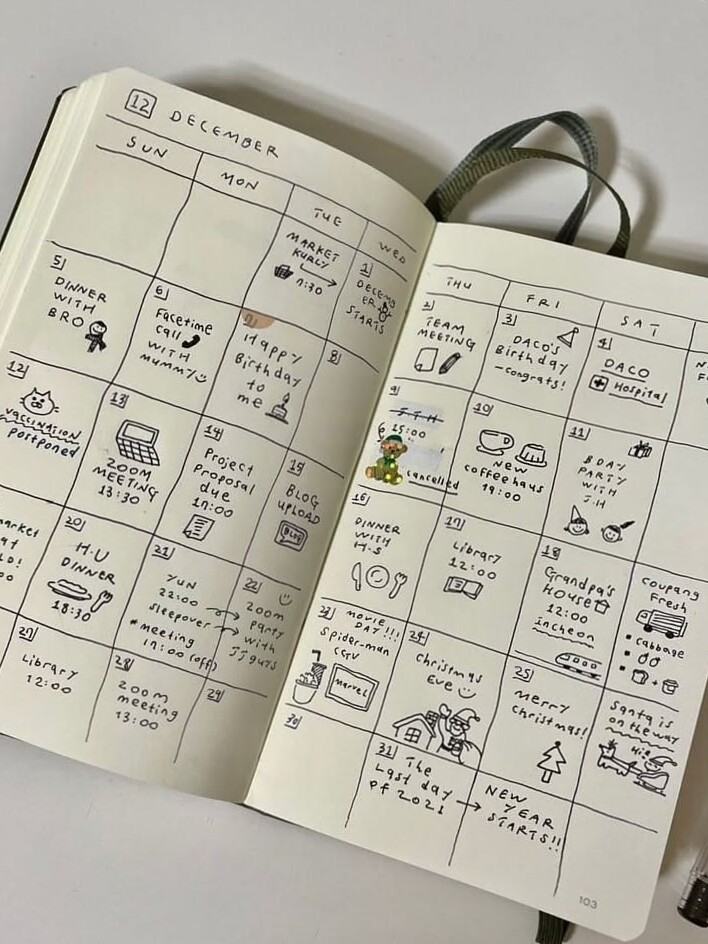 12 DECEMBER
SUN MON TUE WED
MARKET
KURLY
7:30
1
DECEMB
ER
STARTS
5
DINNER
WITH
BRO
6
Facetime
call
WITH
MUMMY
7
Happy
Birthday
to
me
8
12
VACCINATION
postponed
13
ZOOM
MEETING
13:30
14
Project
Proposal
due
17:00
15
BLOG
UPLOAD
BLOG
20
H.U
DINNER
18:30
21
YUN
22:00
sleepover
*meeting
17:00 (off)
22
zoom
party
with
JJ guys
27
Library
12:00
28
zoom
meeting
13:00
29
THU FRI SAT
2
TEAM
MEETING
3
DACO's
Birthday
-congrats!
4
DACO
Hospital
9
J.T.H
15:00
cancelled
10
NEW
coffeehaus
19:00
11
BDAY
PARTY
WITH
J.H
16
DINNER
WITH
H.S
17
Library
12:00
18
Grandpa's
HOUSE
12:00
incheon
COUPANG
Fresh
cabbage
+
23
MOVIE
DAY!!!
Spider-man
CGV
MARVEL
24
Christmas
Eve
25
Merry
Christmas!
Santa is
on the way
30
31
The
Last day
of 2021
NEW
YEAR
STARTS!!
103